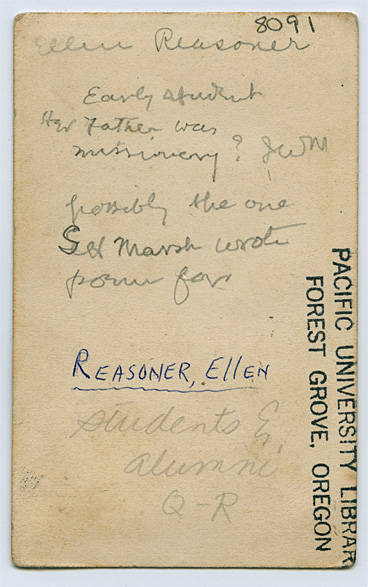 8091
Ellen Reasoner
Early student
Her Father was
missionary? JWM
possibly the one
SH Marsh wrote
poem for
REASONER, EllEN
students &
alumni
Q-R
PACIFIC UNIVERSITY LIBRAR
FOREST GROVE, OREGON